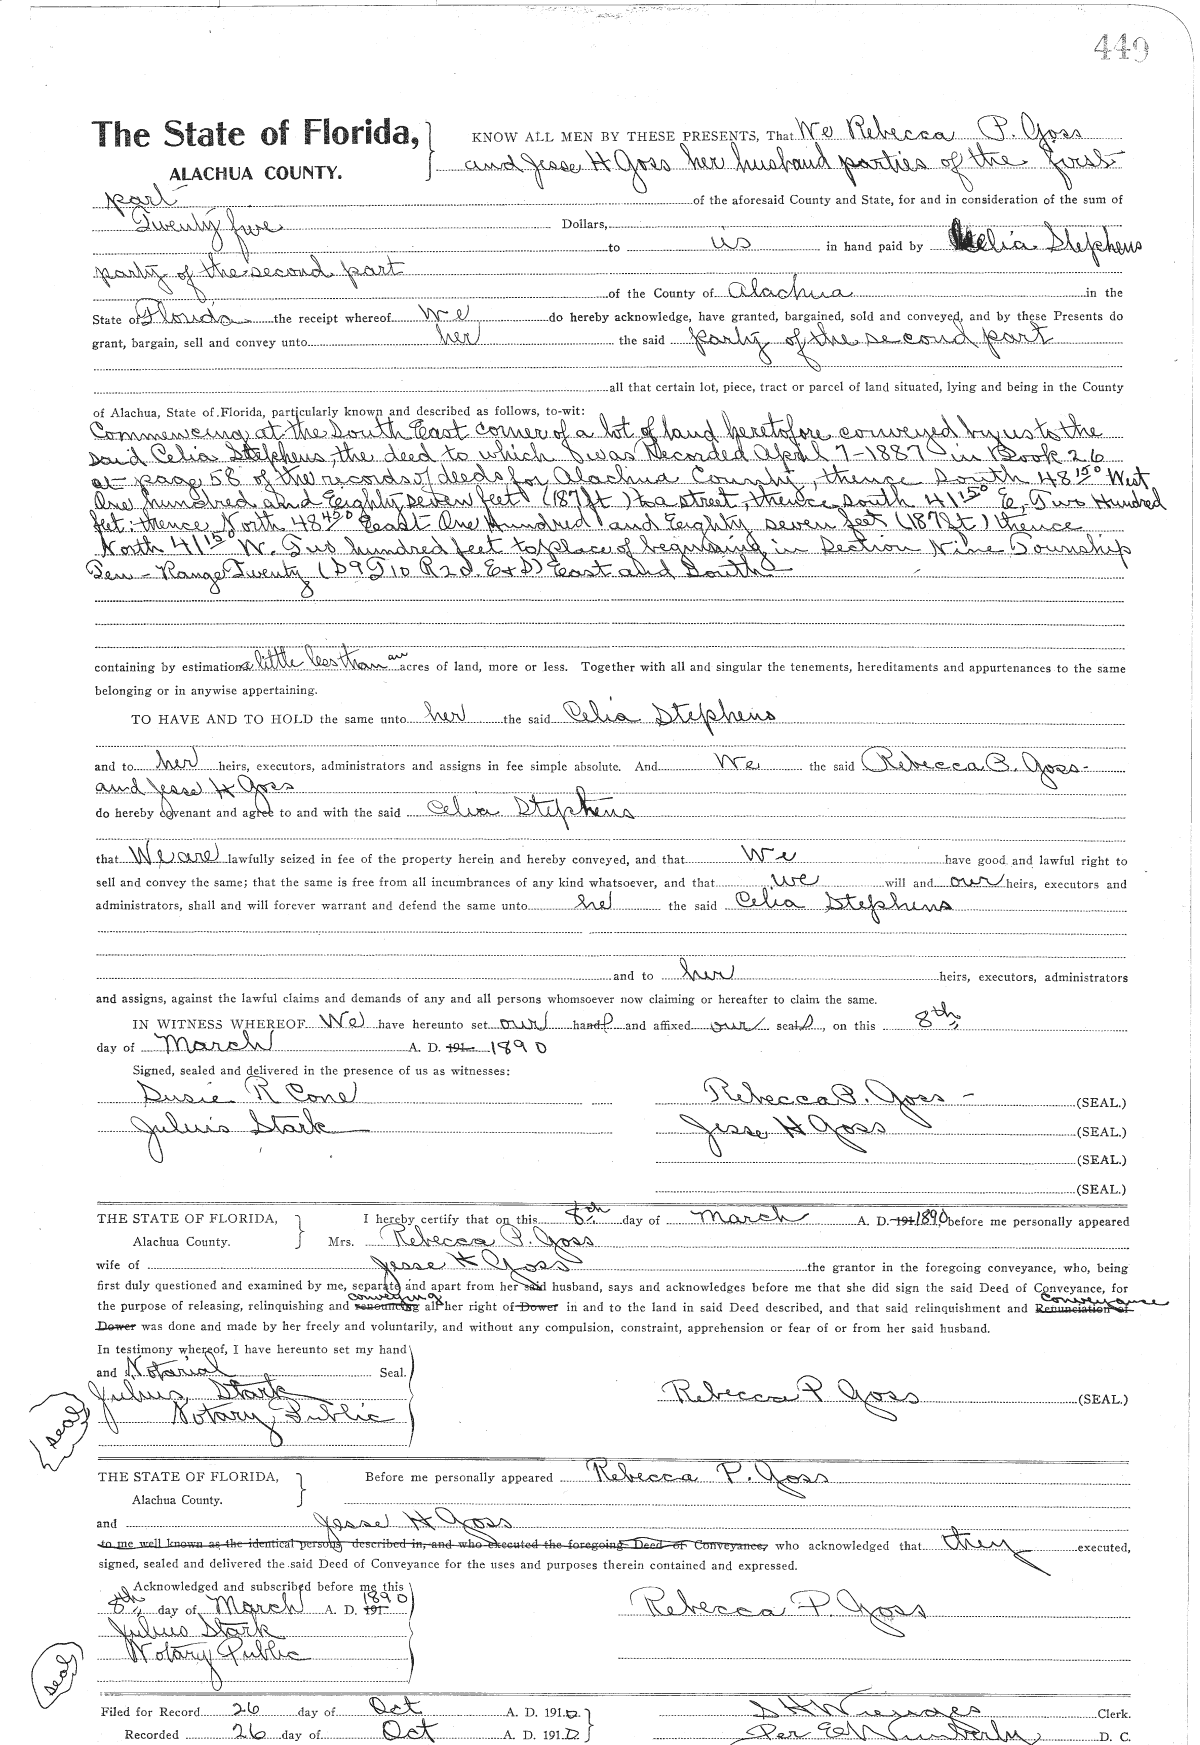 449
The State of Florida,
ALACHUA COUNTY.
KNOW ALL MEN BY THESE PRESENTS, That We Rebecca P. Goss
and Jesse H Goss her husband parties of the first
part of the aforesaid County and State, for and in consideration of the sum of
Twenty five Dollars,
to us in hand paid by Celia Stephens
party of the second part
of the County of Alachua in the
State of Florida the receipt whereof We do hereby acknowledge, have granted, bargained, sold and conveyed, and by these Presents do
grant, bargain, sell and convey unto her the said party of the second part
all that certain lot, piece, tract or parcel of land situated, lying and being in the County
of Alachua, State of Florida, particularly known and described as follows, to-wit:
Commencing at the South East corner of a lot of land heretofore conveyed by us to the
said Celia Stephens, the deed to which was Recorded April 7-1887 in Book 26
at page 58 of the records of deeds for Alachua County, thence South 48 15° West
One hundred and Eighty seven feet (187 ft) to a street, thence South 41 15° E, Two Hundred
feet: thence North 48 45° East One Hundred and Eighty seven feet (187 ft) thence
North 41 15° W. Two hundred feet to place of beginning in Section Nine Township
Ten - Range Twenty (S9 T10 R20 E & S) East and South
containing by estimation a little less than an acres of land, more or less. Together with all and singular the tenements, hereditaments and appurtenances to the same
belonging or in anywise appertaining.
TO HAVE AND TO HOLD the same unto her the said Celia Stephens
and to her heirs, executors, administrators and assigns in fee simple absolute. And We the said Rebecca P. Goss-
and Jesse H Goss
do hereby covenant and agree to and with the said Celia Stephens
that We are lawfully seized in fee of the property herein and hereby conveyed, and that We have good and lawful right to
sell and convey the same; that the same is free from all incumbrances of any kind whatsoever, and that we will and our heirs, executors and
administrators, shall and will forever warrant and defend the same unto he the said Celia Stephens
and to her heirs, executors, administrators
and assigns, against the lawful claims and demands of any and all persons whomsoever now claiming or hereafter to claim the same.
IN WITNESS WHEREOF We have hereunto set our hands and affixed our seals, on this 8th
day of March A. D. 191 1890
Signed, sealed and delivered in the presence of us as witnesses:
Susie R Cone Rebecca P. Goss - (SEAL.)
Julius Stark Jesse H Goss (SEAL.)
(SEAL.)
(SEAL.)
THE STATE OF FLORIDA,
Alachua County.
I hereby certify that on this 8th day of March A. D. 191 1890 before me personally appeared
Mrs. Rebecca P. Goss
wife of Jesse H Goss the grantor in the foregoing conveyance, who, being
first duly questioned and examined by me, separate and apart from her said husband, says and acknowledges before me that she did sign the said Deed of Conveyance, for
the purpose of releasing, relinquishing and renouncing conveying all her right of Dower in and to the land in said Deed described, and that said relinquishment and Renunciation of conveyance
Dower was done and made by her freely and voluntarily, and without any compulsion, constraint, apprehension or fear of or from her said husband.
In testimony whereof, I have hereunto set my hand
and Notarial Seal.
Julius Stark
Notary Public
seal
Rebecca P Goss (SEAL.)
THE STATE OF FLORIDA,
Alachua County.
Before me personally appeared Rebecca P. Goss
and Jesse H Goss
to me well known as the identical persons described in, and who executed the foregoing Deed of Conveyance, who acknowledged that they executed,
signed, sealed and delivered the said Deed of Conveyance for the uses and purposes therein contained and expressed.
Acknowledged and subscribed before me this
8th day of March A. D. 191 1890
Julius Stark
Notary Public
seal
Rebecca P. Goss
Filed for Record 26 day of Oct A. D. 191
Recorded 26 day of Oct A. D. 191
S H Wienges Clerk.
Per D. C.